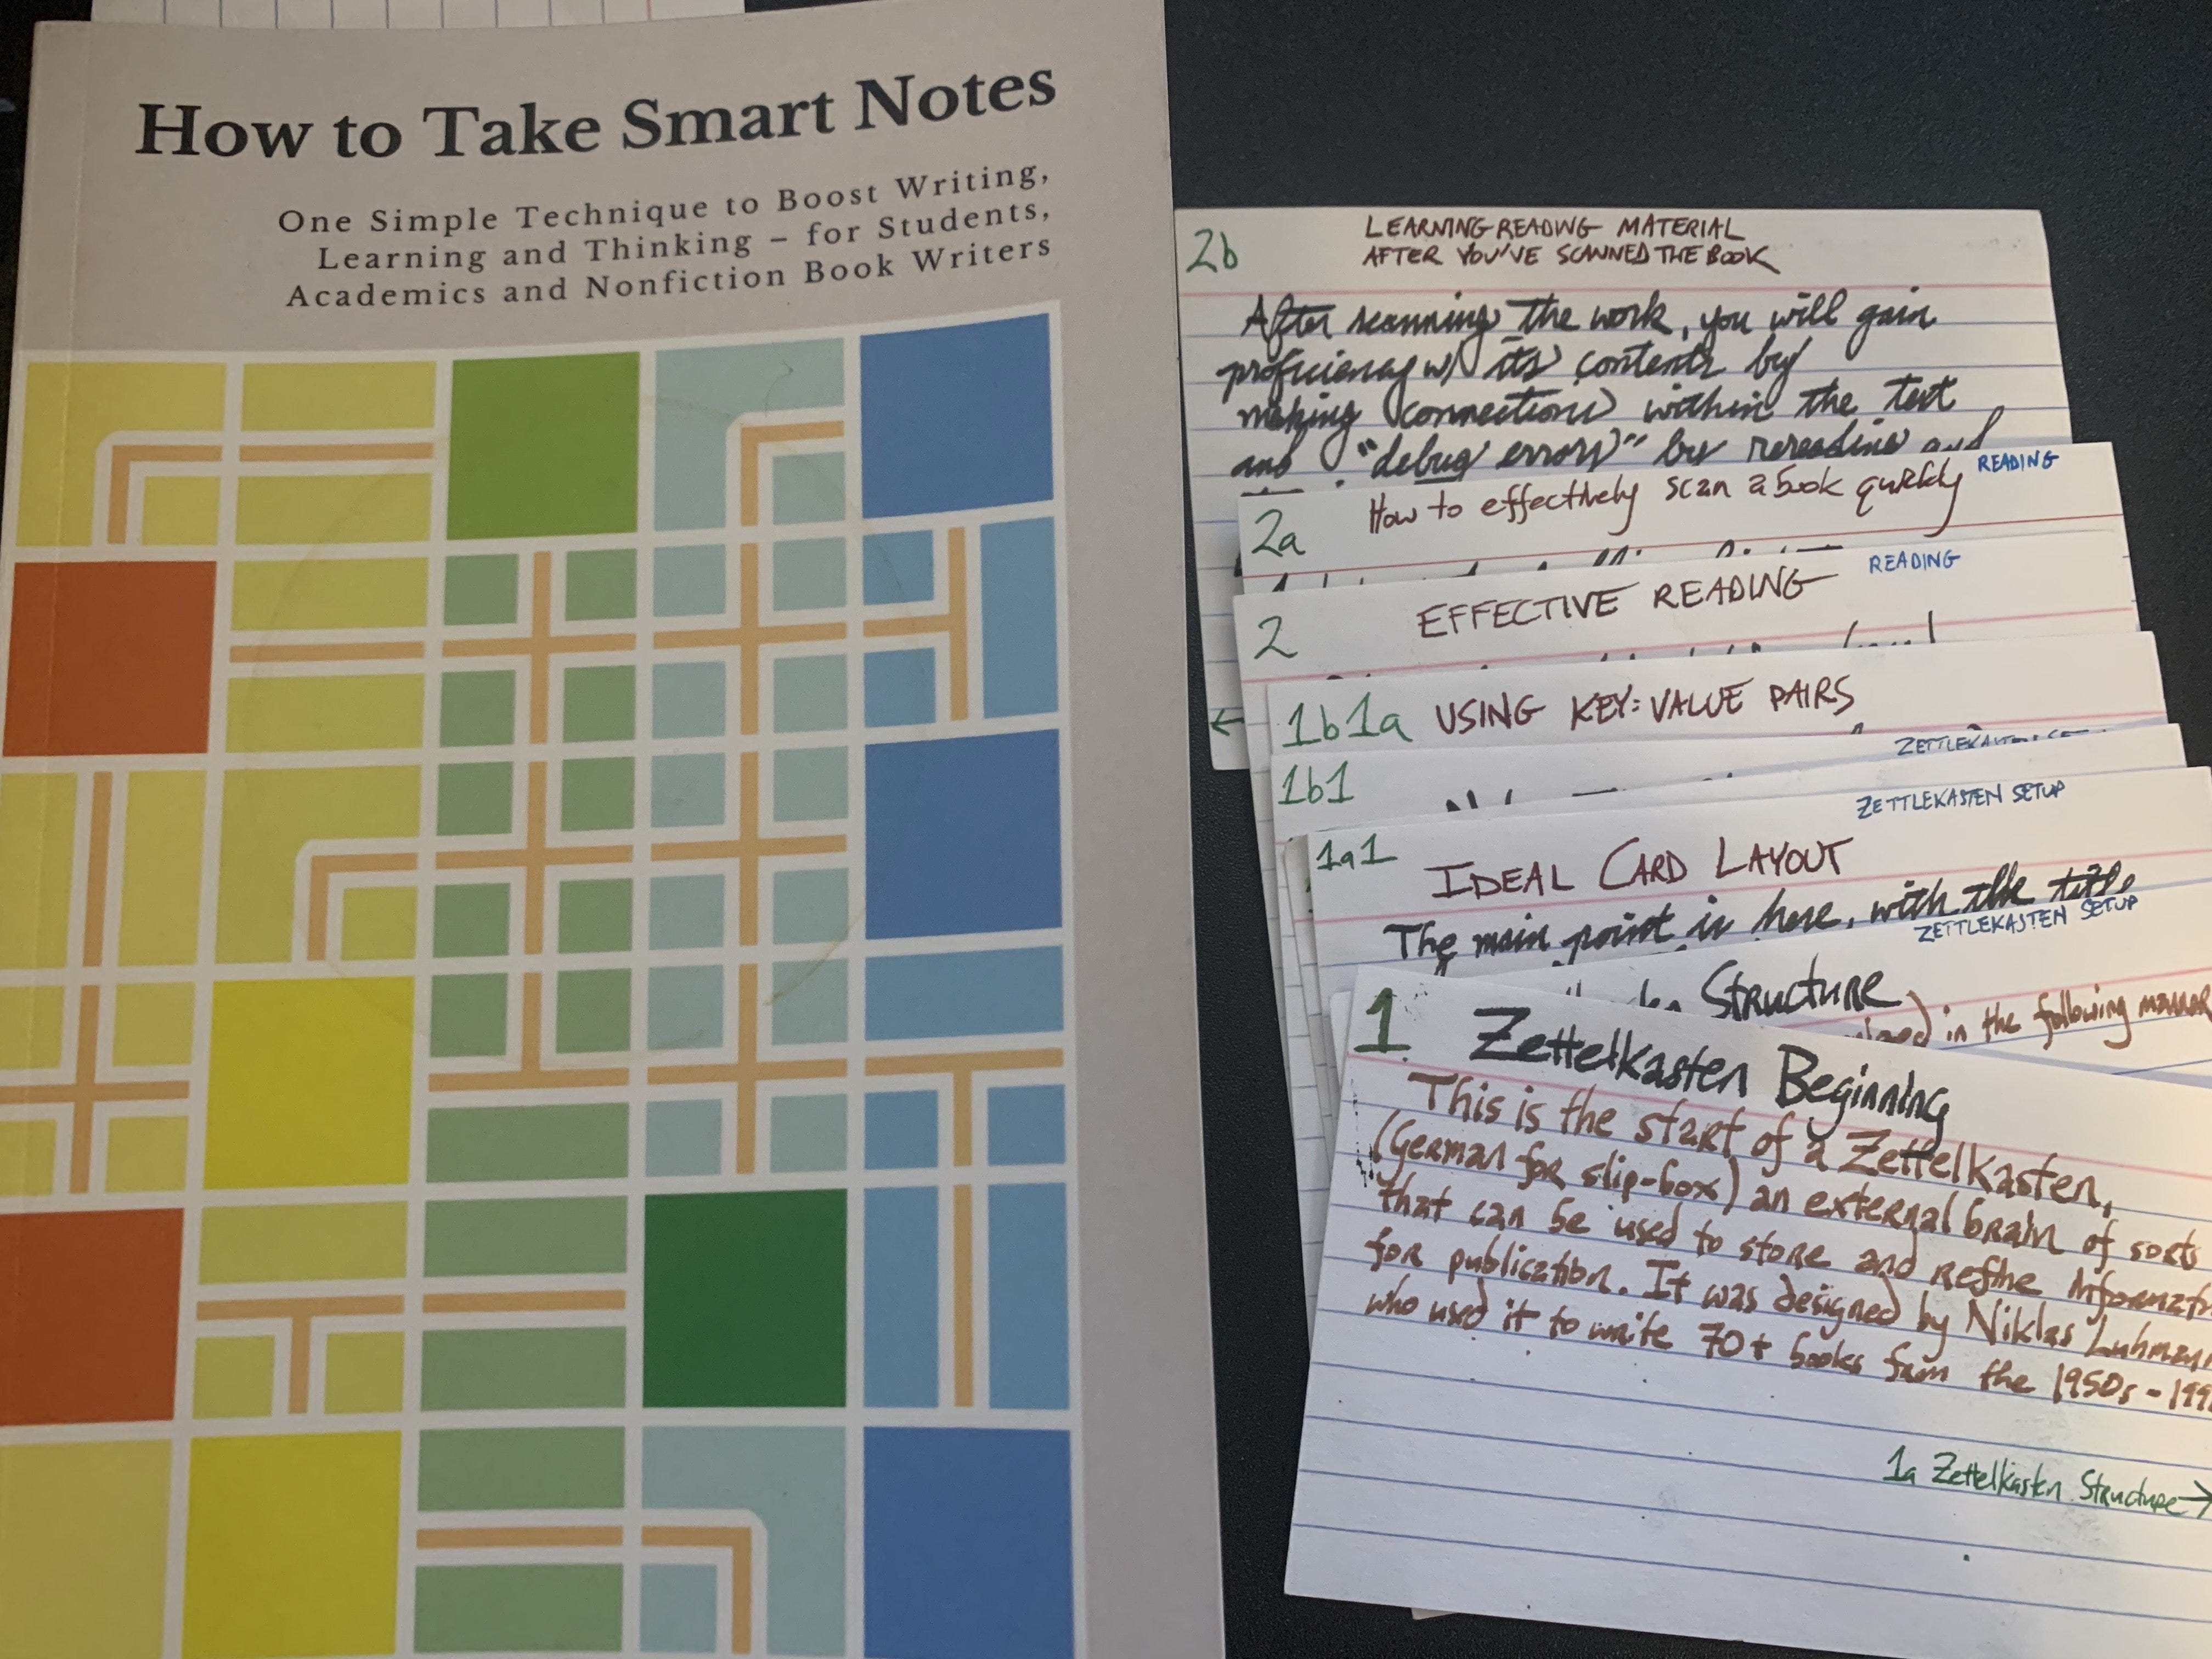 How to Take Smart Notes
One Simple Technique to Boost Writing,
Learning and Thinking – for Students,
Academics and Nonfiction Book Writers
2b
LEARNING READING MATERIAL
AFTER YOU'VE SCANNED THE BOOK
After scanning the work, you will gain
proficiency w/ its contents by
making connections within the text
and "debug errors" by rereading and
2a How to effectively scan a book quickly READING
2 EFFECTIVE READING READING
←
1b1a USING KEY:VALUE PAIRS
1b1
1a1 ZETTLEKASTEN SETUP
IDEAL CARD LAYOUT
The main point is here, with the title
ZETTLEKASTEN SETUP
Structure
in the following manner
1 Zettelkasten Beginning
This is the start of a Zettelkasten,
(German for slip-box) an external brain of sorts
that can be used to store and refine
for publication. It was designed by Niklas
who used it to write 70+ books from the 1950s -
1a Zettelkasten Structure →